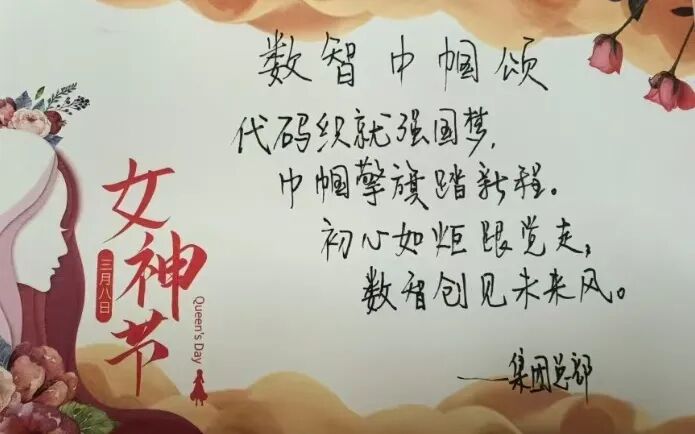 数智巾帼颂
代码织就强国梦,
巾帼擎旗踏新程。
初心如炬跟党走,
数智创见未来风。
——集团总部
女神节
三月八日
Queen's Day